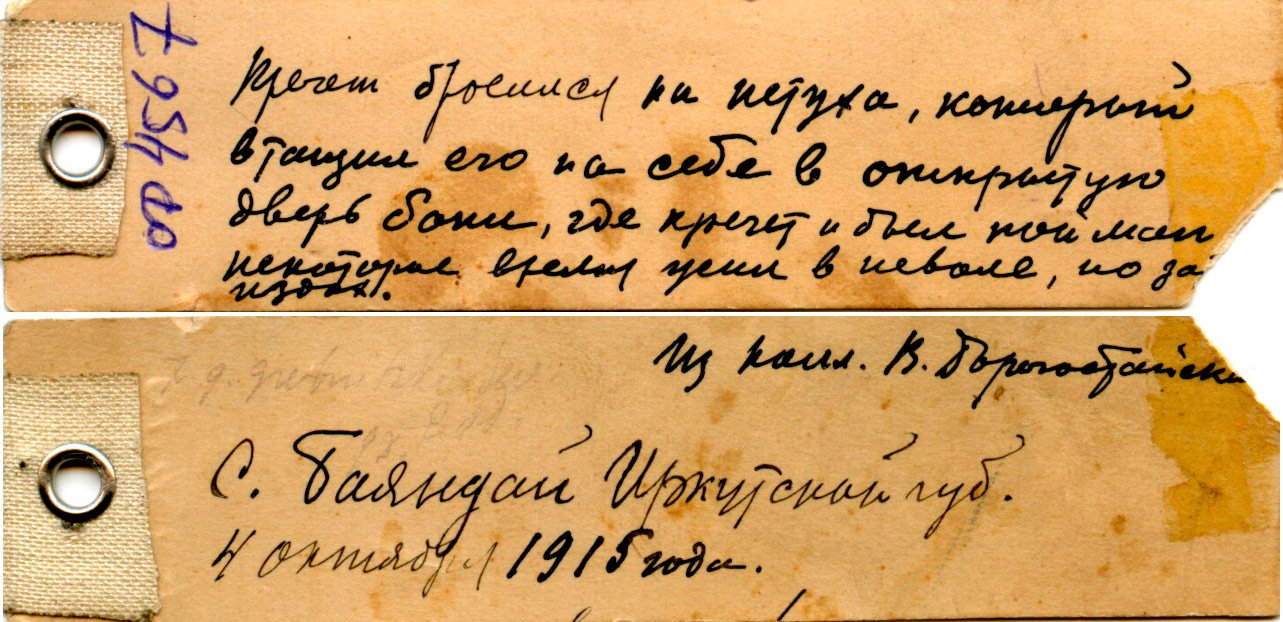 Z 954 00
Кречет бросился на петуха, который
втащил его на себе в открытую
дверь бани, где кречет и был пойман
некоторое время жил в неволе, но за
издох.
Из колл. В.
С. Баяндай Иркутской губ.
4 октября 1915 года.